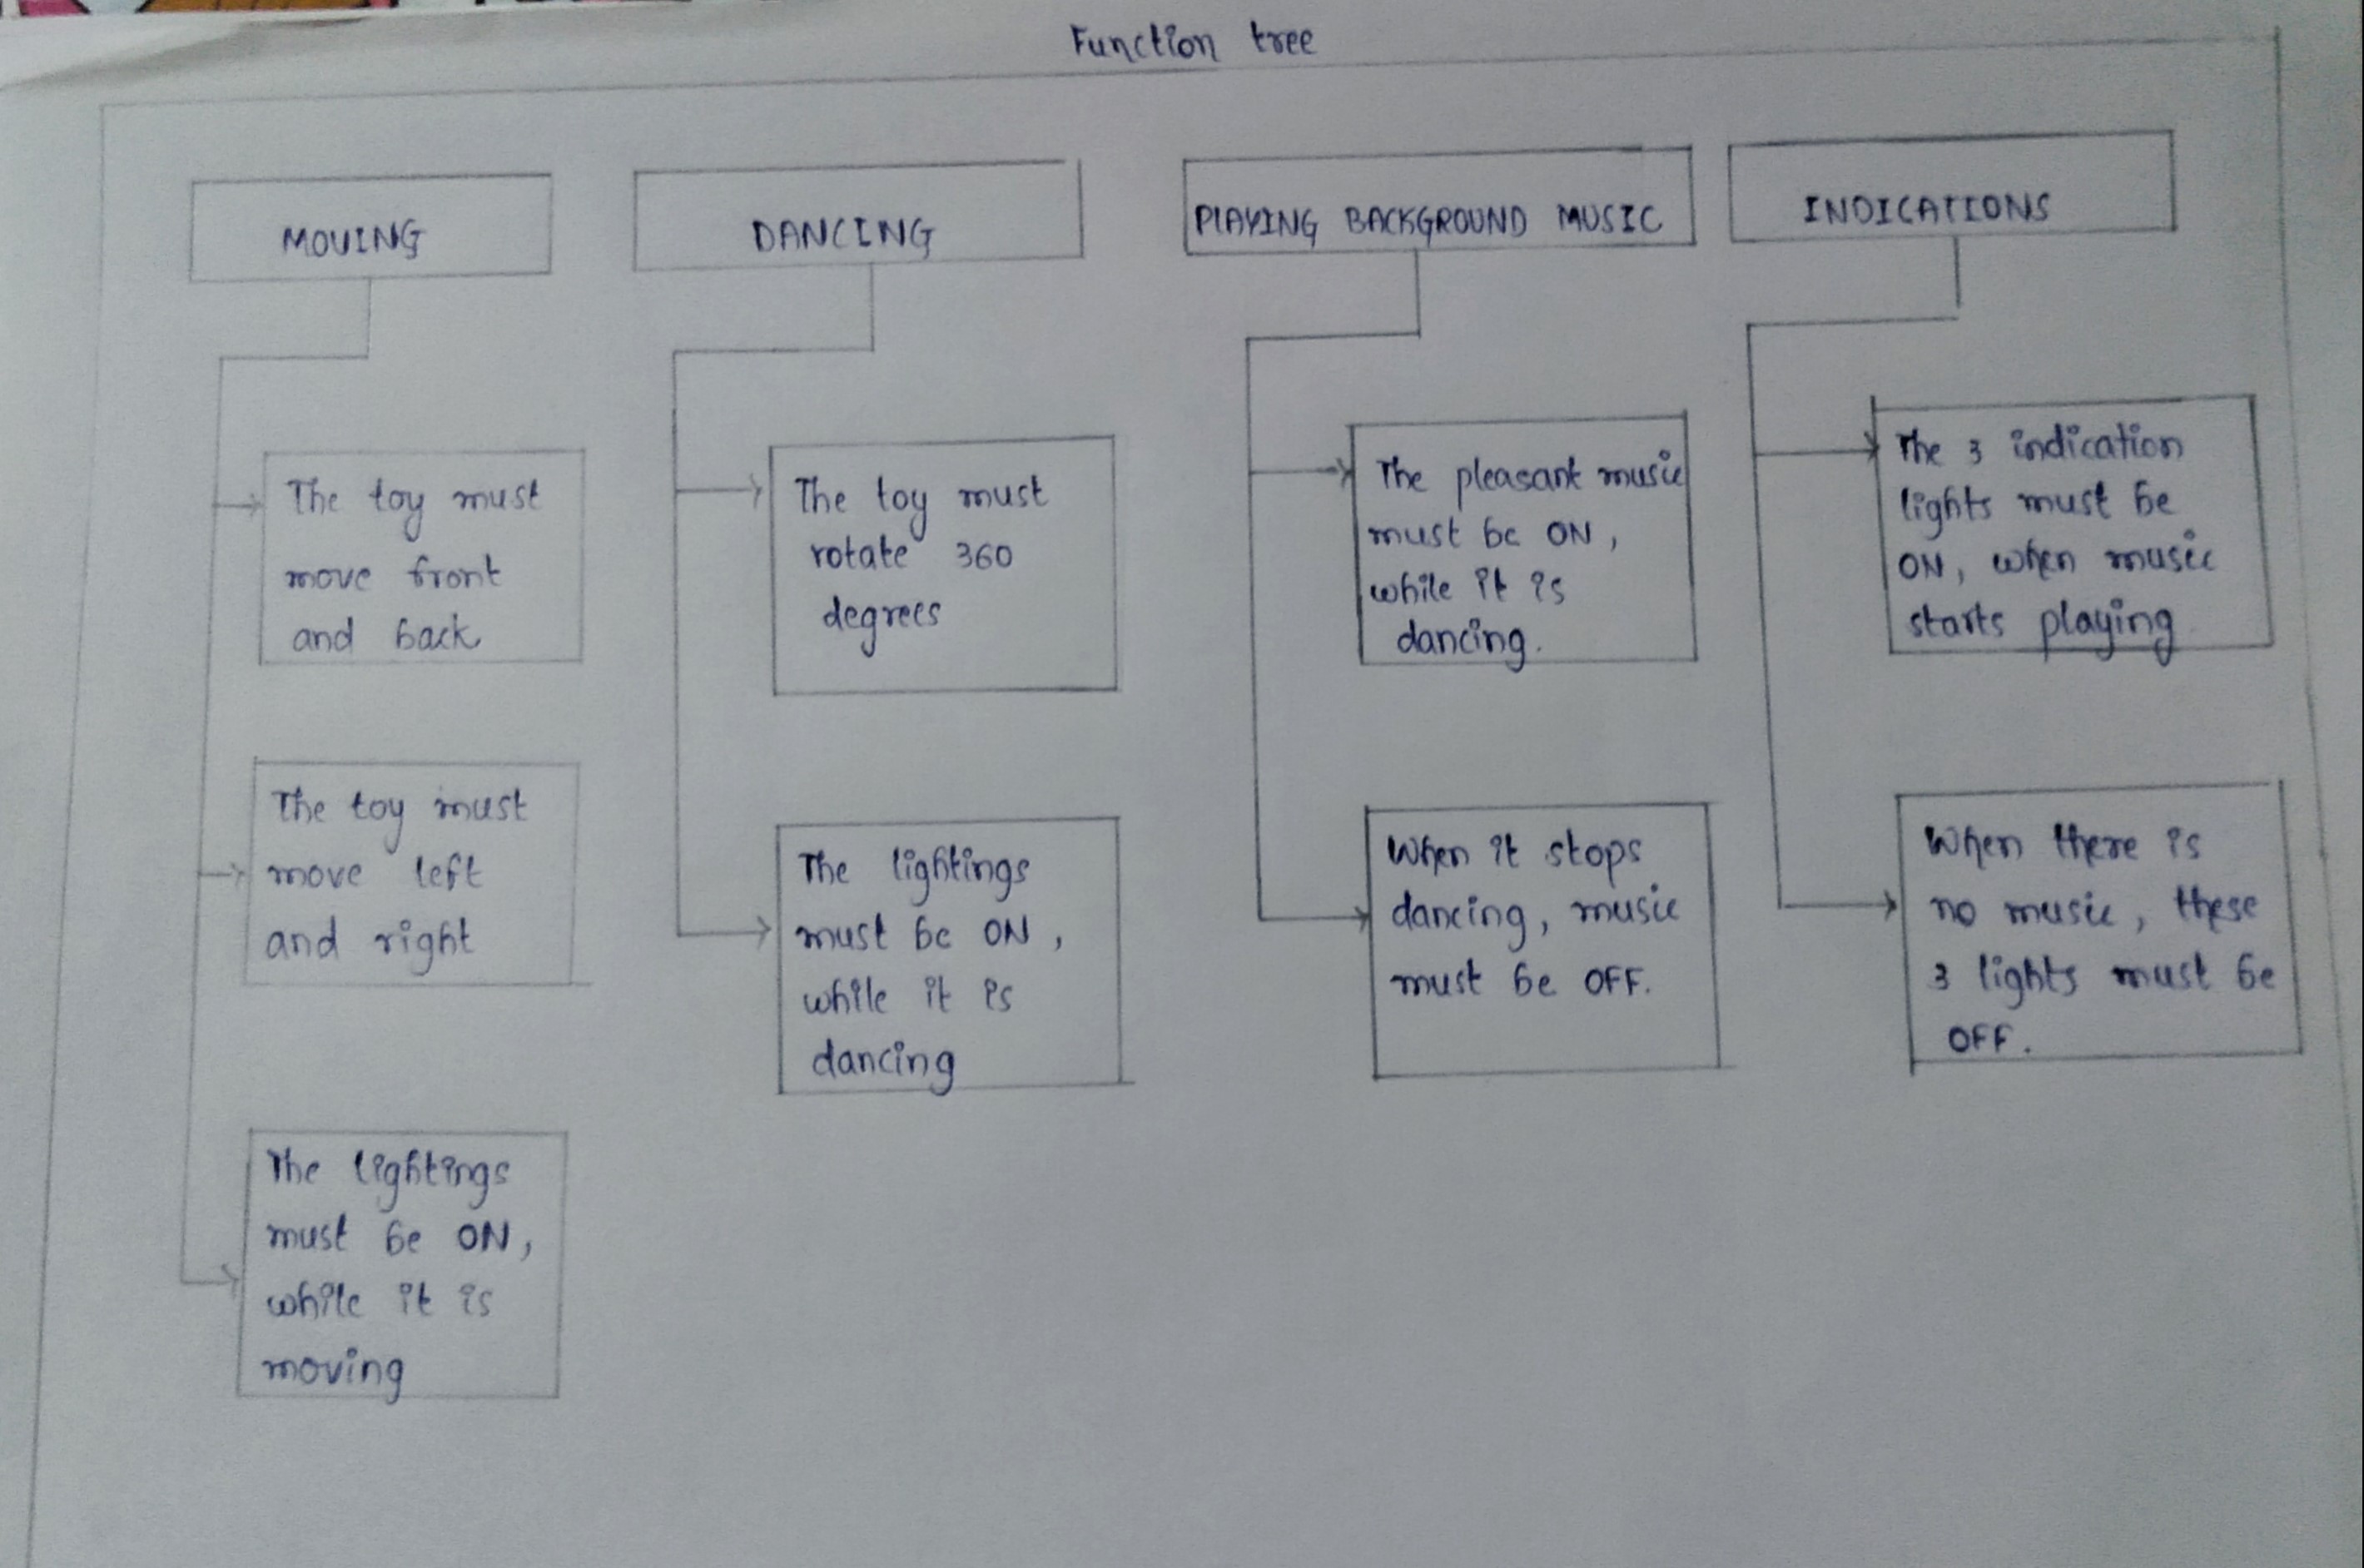 Function tree
MOVING
The toy must
move front
and back
The toy must
move left
and right
The lightings
must be ON,
while it is
moving
DANCING
The toy must
rotate 360
degrees
The lightings
must be ON,
while it is
dancing
PLAYING BACKGROUND MUSIC
The pleasant music
must be ON,
while it is
dancing.
When it stops
dancing, music
must be OFF.
INDICATIONS
The 3 indication
lights must be
ON, when music
starts playing
When there is
no music, these
3 lights must be
OFF.